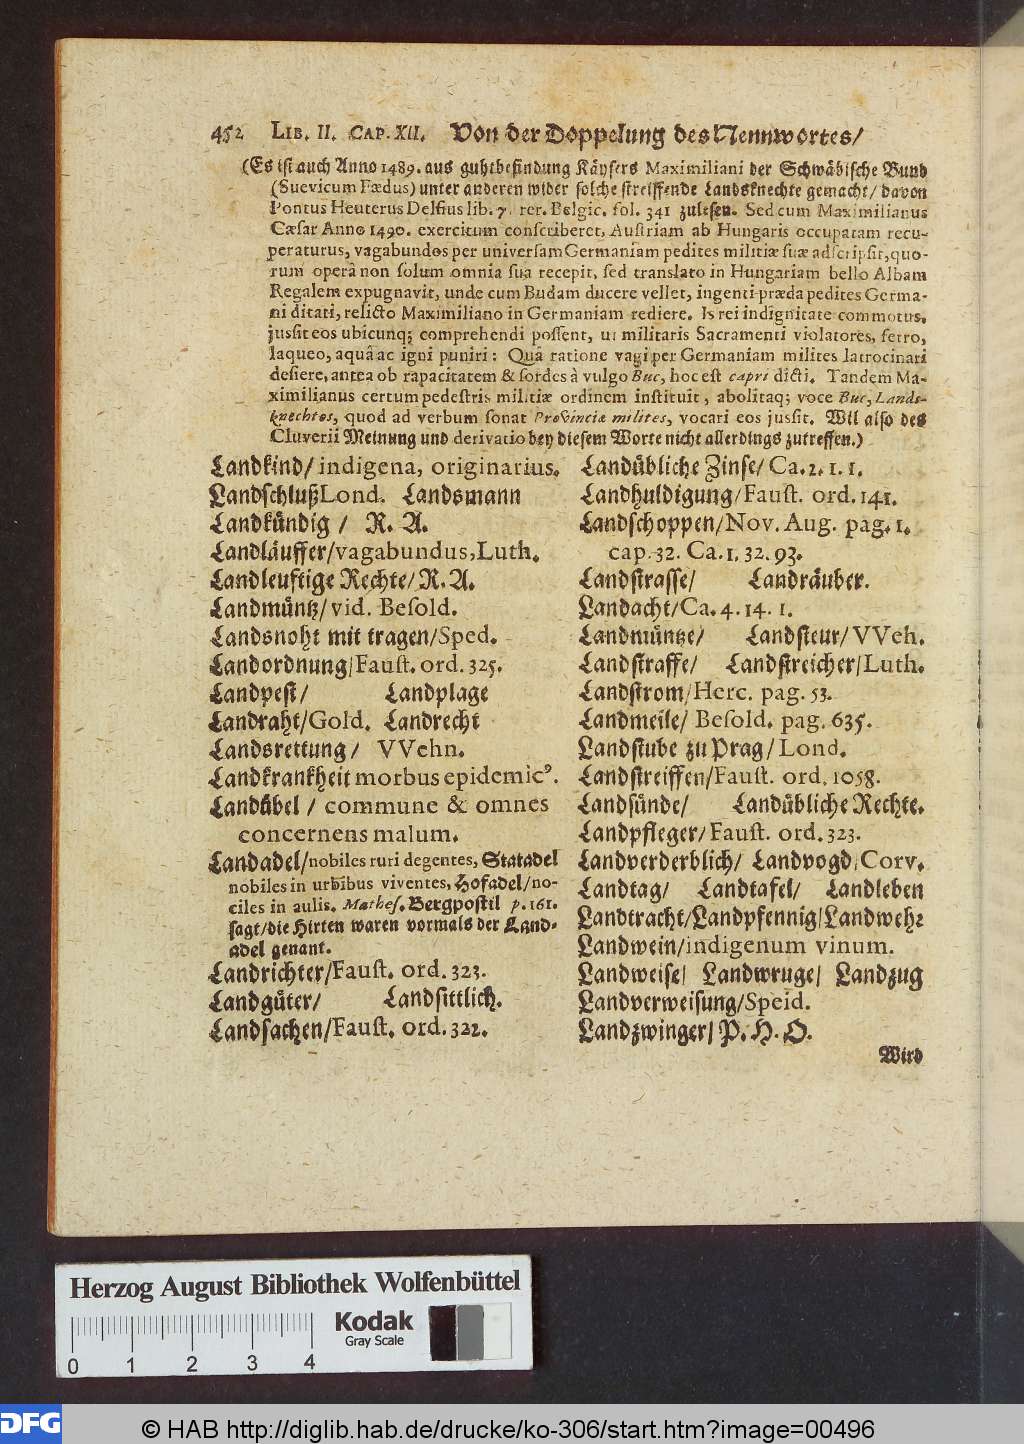 452 LIB. II. CAP. XII. Von der Doppelung des Nennwortes/
(Es ist auch Anno 1489. aus guhtbefindung Käysers Maximiliani der Schwäbische Bund
(Suevicum Fœdus) unter anderen wider solche streiffende Landsknechte gemacht/ davon
Pontus Heuterus Delfius lib. 7. rer. Belgic. fol. 341 zulesen. Sed cum Maximilianus
Cæsar Anno 1490. exercitum conscriberet, Austriam ab Hungaris occupatam recu-
peraturus, vagabundos per universam Germaniam pedites militiæ suæ adscripsit, quo-
rum operâ non solum omnia sua recepit, sed translato in Hungariam bello Albam
Regalem expugnavit, unde cum Budam ducere vellet, ingenti præda pedites Germa-
ni ditati, relicto Maximiliano in Germaniam rediere. Is rei indignitate commotus,
jussit eos ubicunq; comprehendi possent, ut militaris Sacramenti violatores, ferro,
laqueo, aquâ ac igni puniri: Quâ ratione vagi per Germaniam milites latrocinari
desiere, antea ob rapacitatem & sordes à vulgo Buc, hoc est capri dicti. Tandem Ma-
ximilianus certum pedestris militiæ ordinem instituit, abolitaq; voce Buc, Lands-
knechtos, quod ad verbum sonat Provinciæ milites, vocari eos jussit. Wil also des
Cluverii Meinung und derivatio bey diesem Worte nicht allerdings zutreffen.)
Landkind/ indigena, originarius.
Landschluß Lond. Landsmann
Landkündig / R. A.
Landläuffer/vagabundus, Luth.
Landleuftige Rechte/ R. A.
Landmüntz/ vid. Besold.
Landsnoht mit tragen/Sped.
Landordnung/Faust. ord. 325.
Landpest/ Landplage
Landraht/Gold. Landrecht
Landsrettung/ VVehn.
Landkrankheit morbus epidemicꝰ.
Landübel / commune & omnes
concernens malum.
Landadel/nobiles ruri degentes, Statadel
nobiles in urbibus viventes, Hofadel/no-
ciles in aulis. Mathes. Bergpostil p. 161.
sagt/die Hirten waren vormals der Land-
adel genant.
Landrichter/Faust. ord. 323.
Landgüter/ Landsittlich.
Landsachen/Faust. ord. 322.
Landübliche Zinse/ Ca. 2. 1. 1.
Landhuldigung/Faust. ord. 141.
Landschoppen/Nov. Aug. pag. 1.
cap. 32. Ca. 1. 32. 93.
Landstrasse/ Landräuber.
Landacht/Ca. 4. 14. 1.
Landmüntze/ Landsteur/ VVeh.
Landstraffe/ Landstreicher/Luth.
Landstrom/Herc. pag. 53.
Landmeile/ Besold. pag. 635.
Landstube zu Prag/ Lond.
Landstreiffen/Faust. ord. 1058.
Landsünde/ Landübliche Rechte.
Landpfleger/ Faust. ord. 323.
Landverderblich/ Landvogd, Corv.
Landtag/ Landtafel/ Landleben
Landtracht/Landpfennig/Landwehr
Landwein/indigenum vinum.
Landweise/ Landwruge/ Landzug
Landverweisung/Speid.
Landzwinger/ P. H. O.
Wird
Herzog August Bibliothek Wolfenbüttel
Kodak
Gray Scale
0 1 2 3 4
DFG
© HAB http://diglib.hab.de/drucke/ko-306/start.htm?image=00496